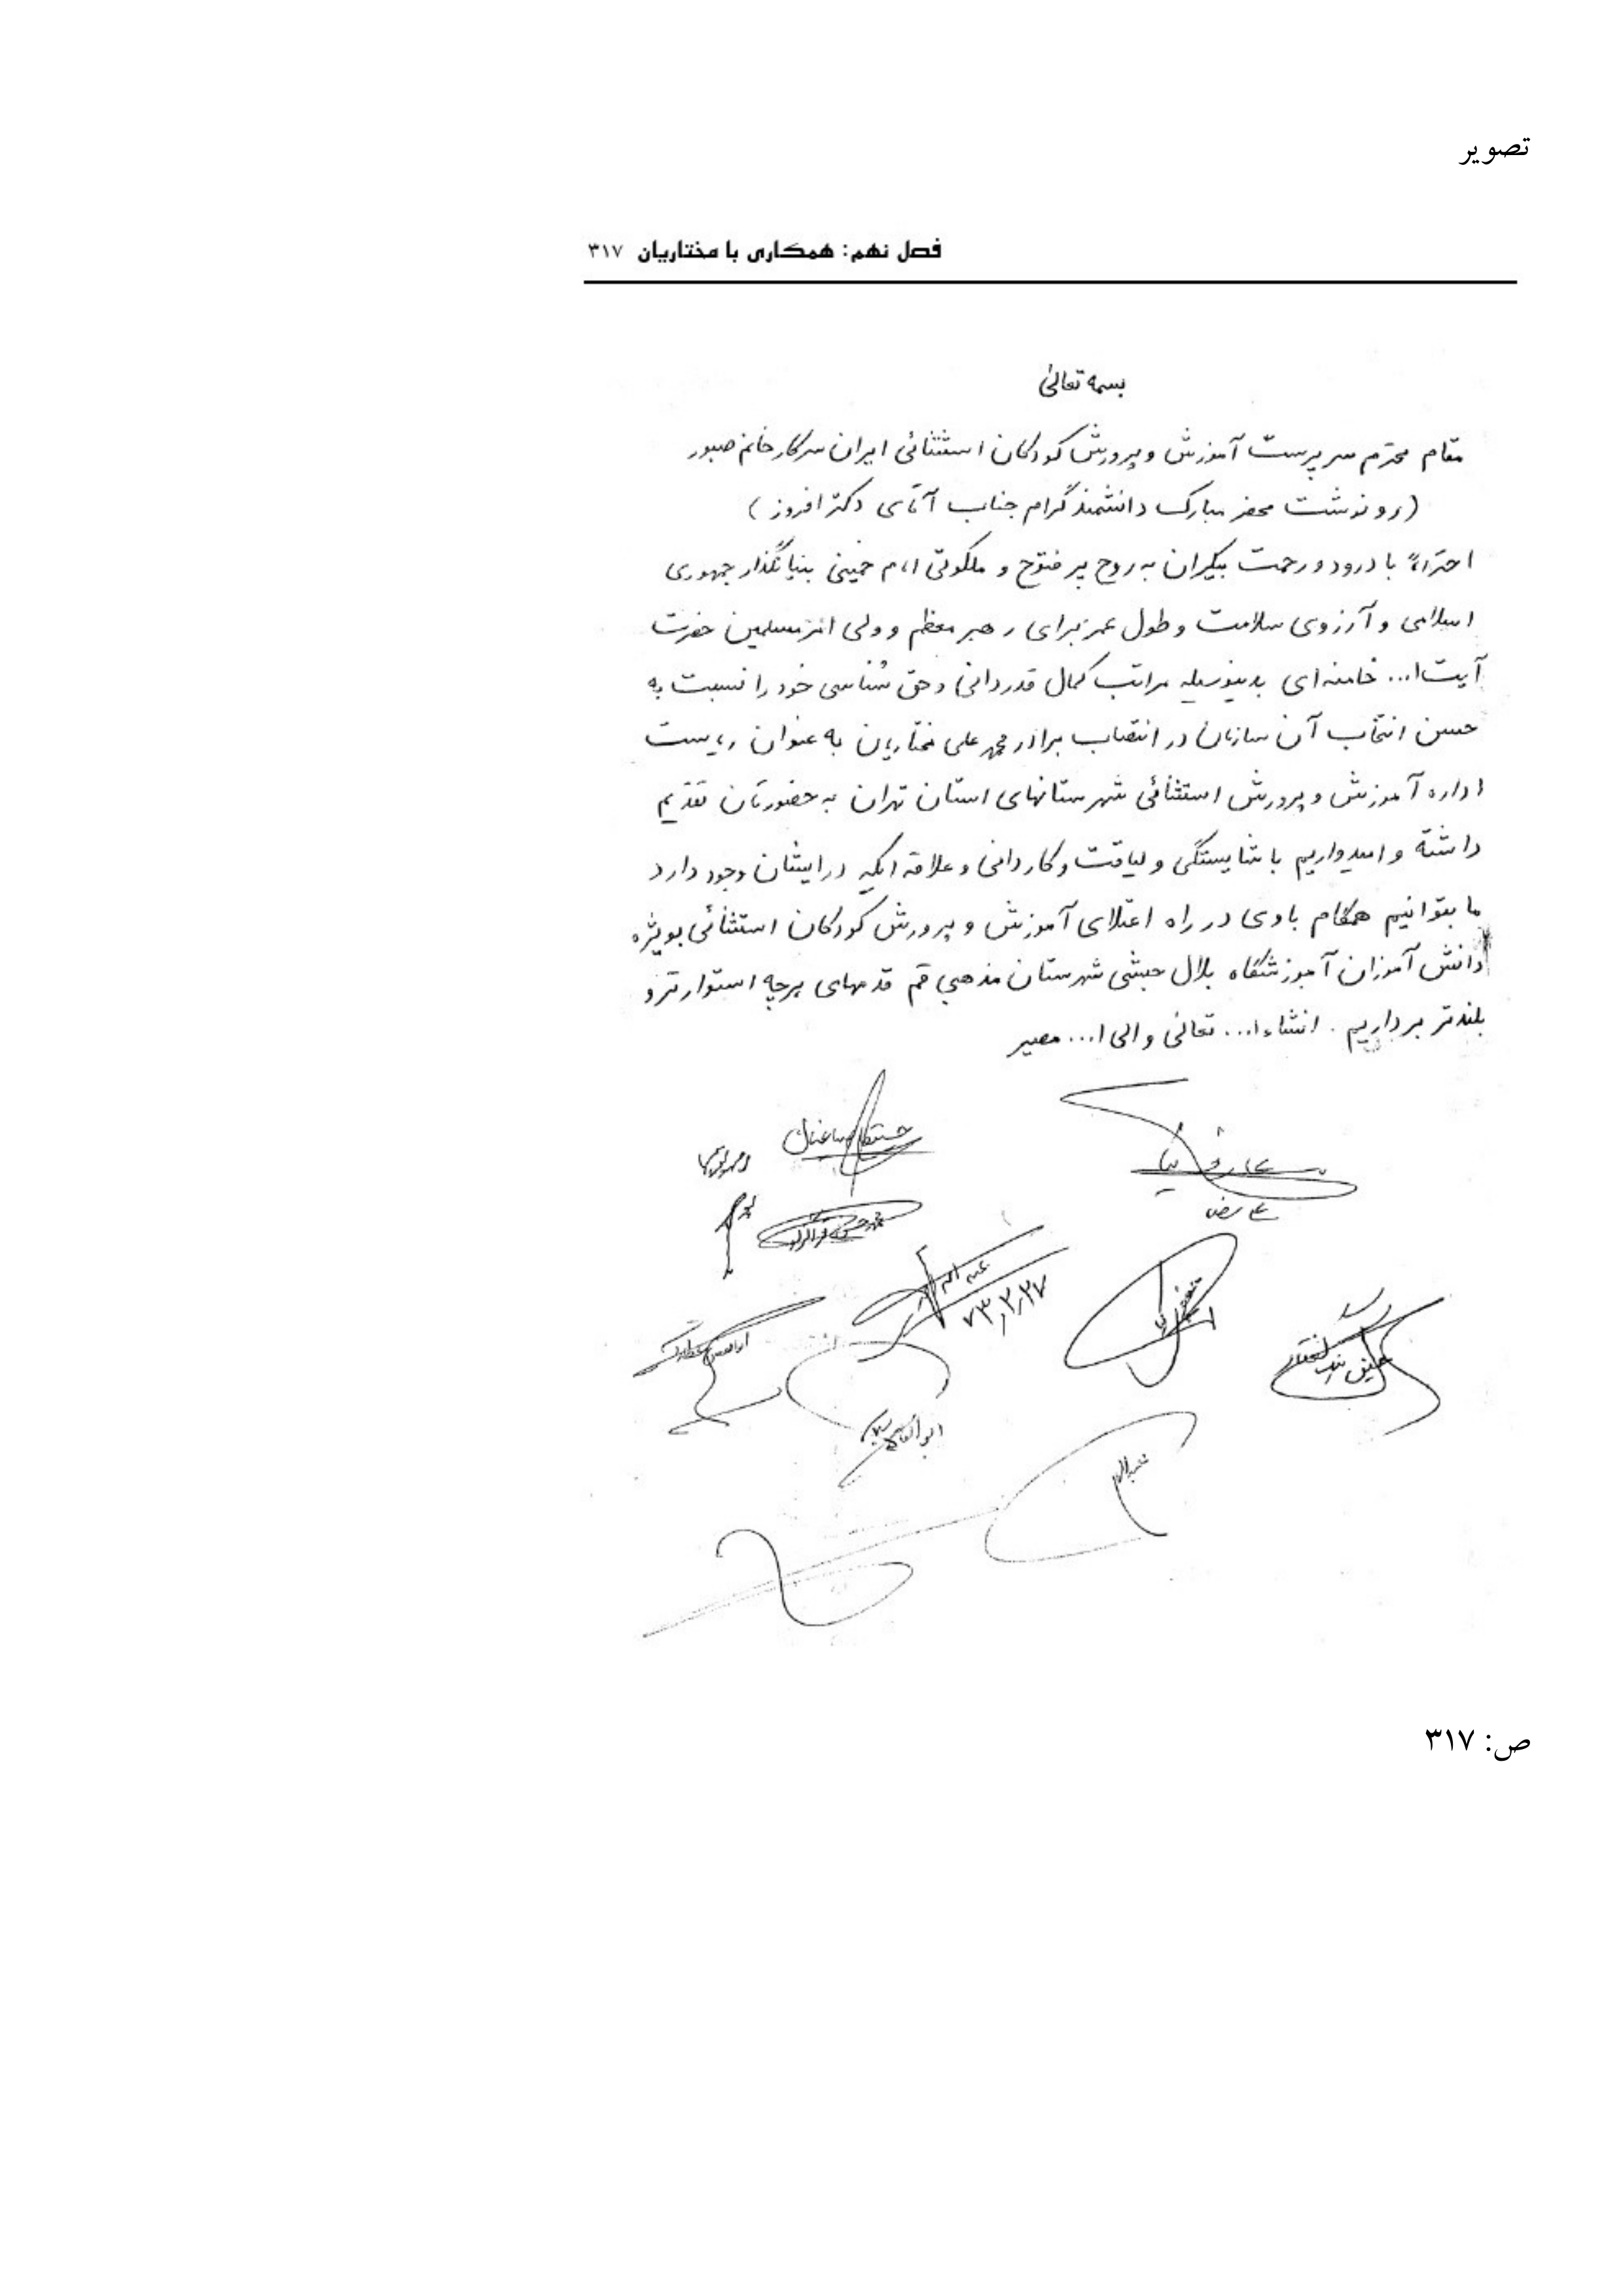 تصویر
فصل نهم: همکاری با مختاریان ۳۱۷
بسمه تعالی
مقام محترم سرپرست آموزش و پرورش کودکان استثنائی ایران سرکار خانم صبور
(رونوشت محضر مبارک دانشمند گرام جناب آقای دکتر افروز)
احتراماً با درود و رحمت بیکران به روح پر فتوح و ملکوتی امام خمینی بنیانگذار جمهوری
اسلامی و آرزوی سلامت و طول عمر برای رهبر معظم و ولی امر مسلمین حضرت
آیت ا... خامنه‌ای بدینوسیله مراتب کمال قدردانی و حق شناسی خود را نسبت به
حسن انتخاب آن سازمان در انتصاب برادر محمد علی مختاریان به عنوان ریاست
اداره آموزش و پرورش استثنائی شهرستانهای استان تهران به حضورتان تقدیم
داشته و امیدواریم با شایستگی و لیاقت و کاردانی و علاقه ایکه در ایشان وجود دارد
ما بتوانیم همگام با وی در راه اعتلای آموزش و پرورش کودکان استثنائی بویژه
دانش آموزان آموزشگاه بلال حبشی شهرستان مذهبی قم قدمهای هرچه استوارتر و
بلندتر برداریم. انشاء ا... تعالی و الی ا... مصیر
۷۳,۳,۲۷
ص: ۳۱۷